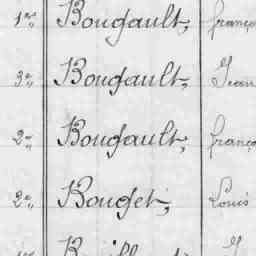 1er, Bougault, franço
3e, Bougault, Jean
2e, Bougault, franço
2e, Bouget, Louis